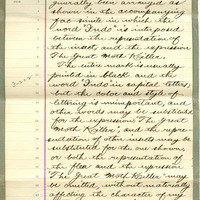 generally been arranged as
shown in the accompanying
fac simile in which the
word "Indo" is interposed
between the representation of
the insect, and the expression
The Great Moth Killer.
The entire mark is usually
printed in black and the
word "Indo" in capital letters;
but the color and style of
lettering is unimportant, and
other words may be substituted
for the expression "The Great
Moth Killer", and the repre-
sentations of other insects may be
substituted for the one shown,
or both the representation of
the insect and the expression
"The Great Moth Killer" may
be omitted without materially
affecting the character of my